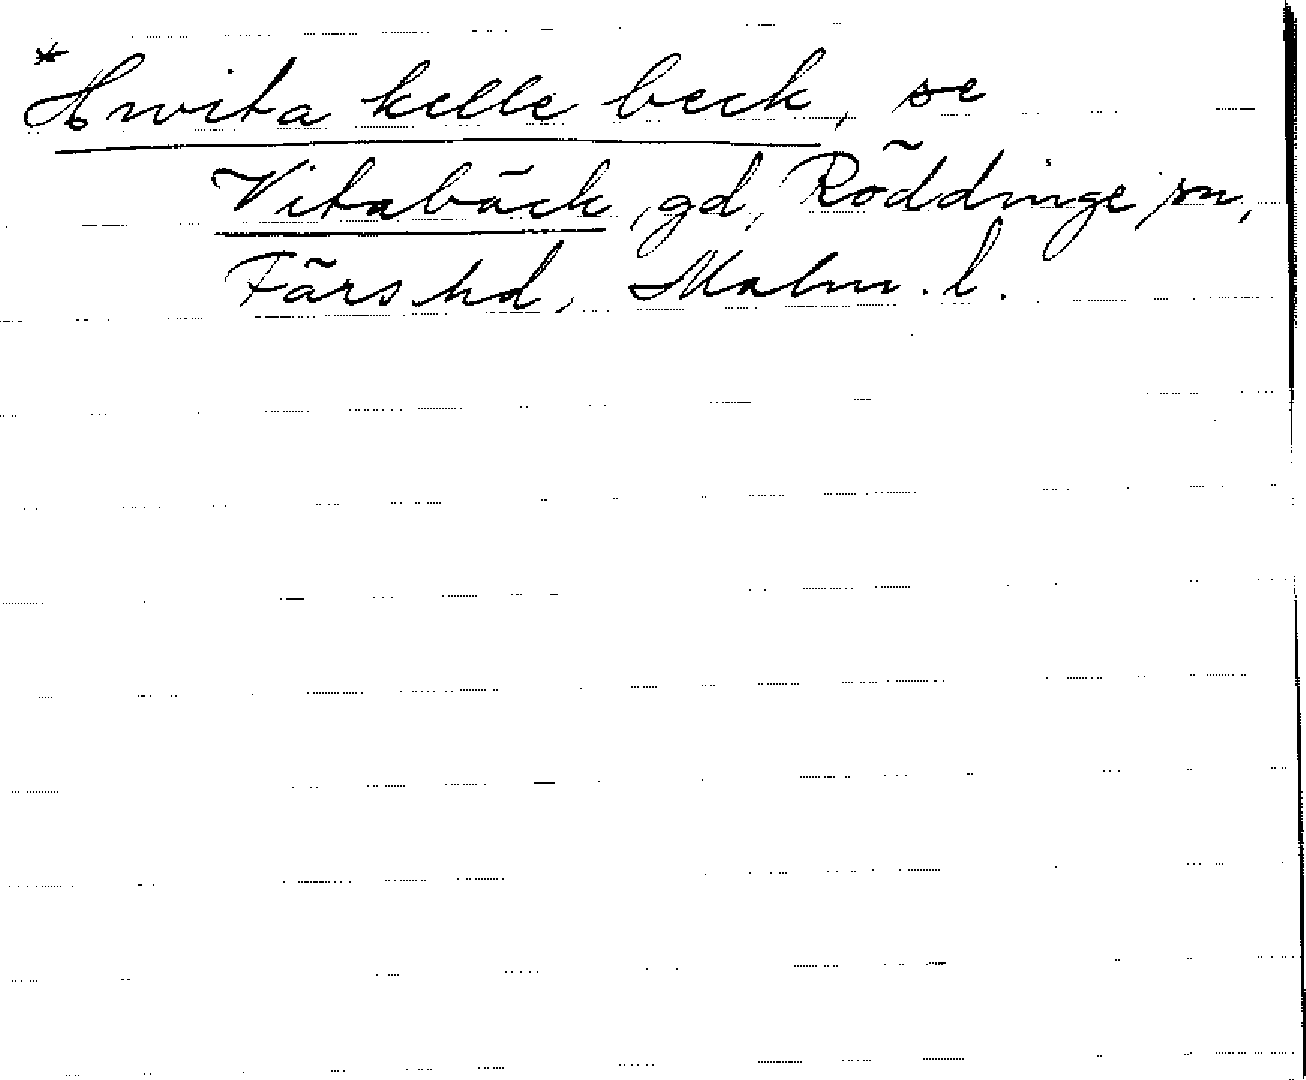 * Hwita kelle beck, se
Vitabäck, gd, Röddinge sn,
Färs hd, Malm. l.